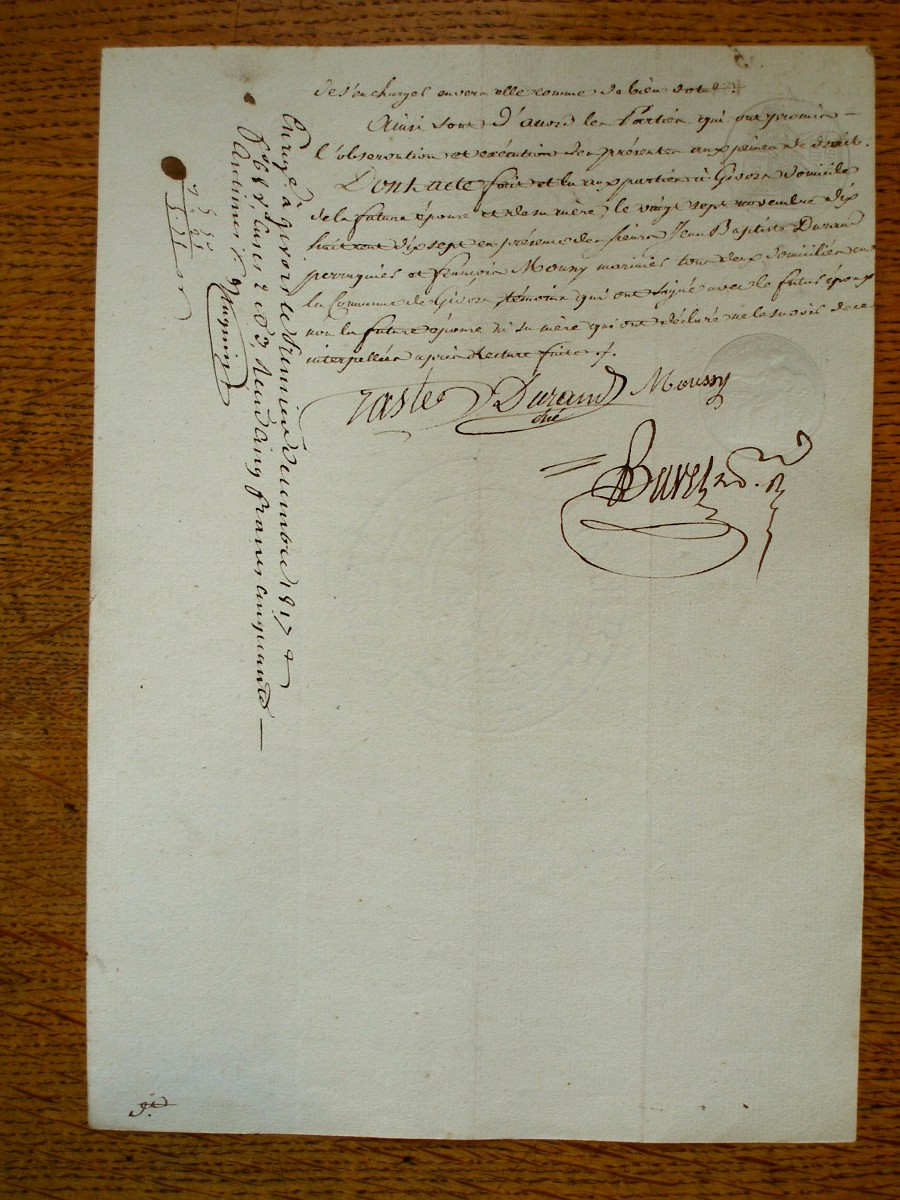 de s'en charger envers elle comme de bien dotal.
Ainsi sont d'accord les Parties qui ont promis
l'observation et exécution des présentes aux peines de droit.
Dont acte fait et lu aux parties à Givors domicile
de la future épouse et de sa mère le vingt sept novembre dix
huit cent dix sept en présence des sieurs Jean Baptiste Durand
perruquier et françois Moussy marinier tous deux domiciliés en
la Commune de Givors témoins qui ont signé avec le futur époux
non la future épouse ni sa mère qui ont déclaré ne le savoir de ce
interpellées après lecture faite /.
Durand Moussy
Buret
Enregé à Givors le premier décembre 1817
cases 2 et 3, Reçu cinq francs cinquante
centimes